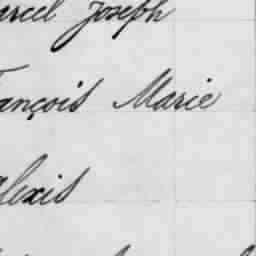 arcel Joseph
ançois Marie
lexis